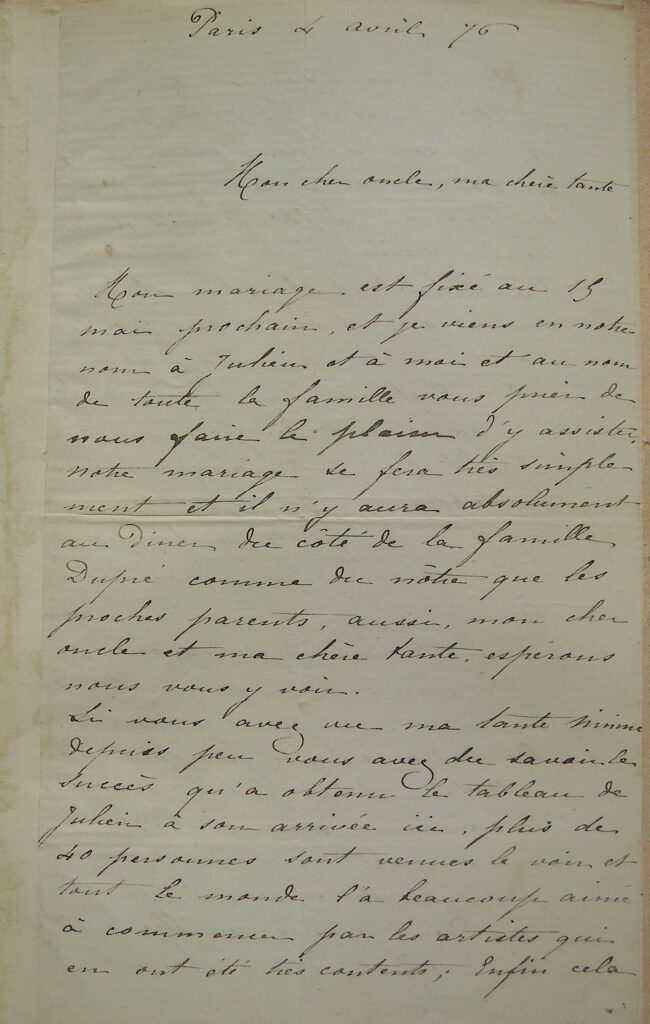 Paris 4 avril 76
Mon cher oncle, ma chère tante
Mon mariage est fixé au 15
mai prochain, et je viens en notre
nom à Julien et à moi et au nom
de toute la famille vous prier de
nous faire le plaisir d'y assister,
notre mariage se fera très simple
ment et il n'y aura absolument
au Diner du côté de la famille
Dupré comme du nôtre que les
proches parents, aussi, mon cher
oncle et ma chère tante, espérons
nous vous y voir.
Si vous avez vu ma tante
depuis peu vous avez du savoir le
succès qu'a obtenu le tableau de
Julien à son arrivée ici, plus de
40 personnes sont venues le voir et
tout le monde l'a beaucoup aimé
à commencer par les artistes qui
en ont été très contents; Enfin cela